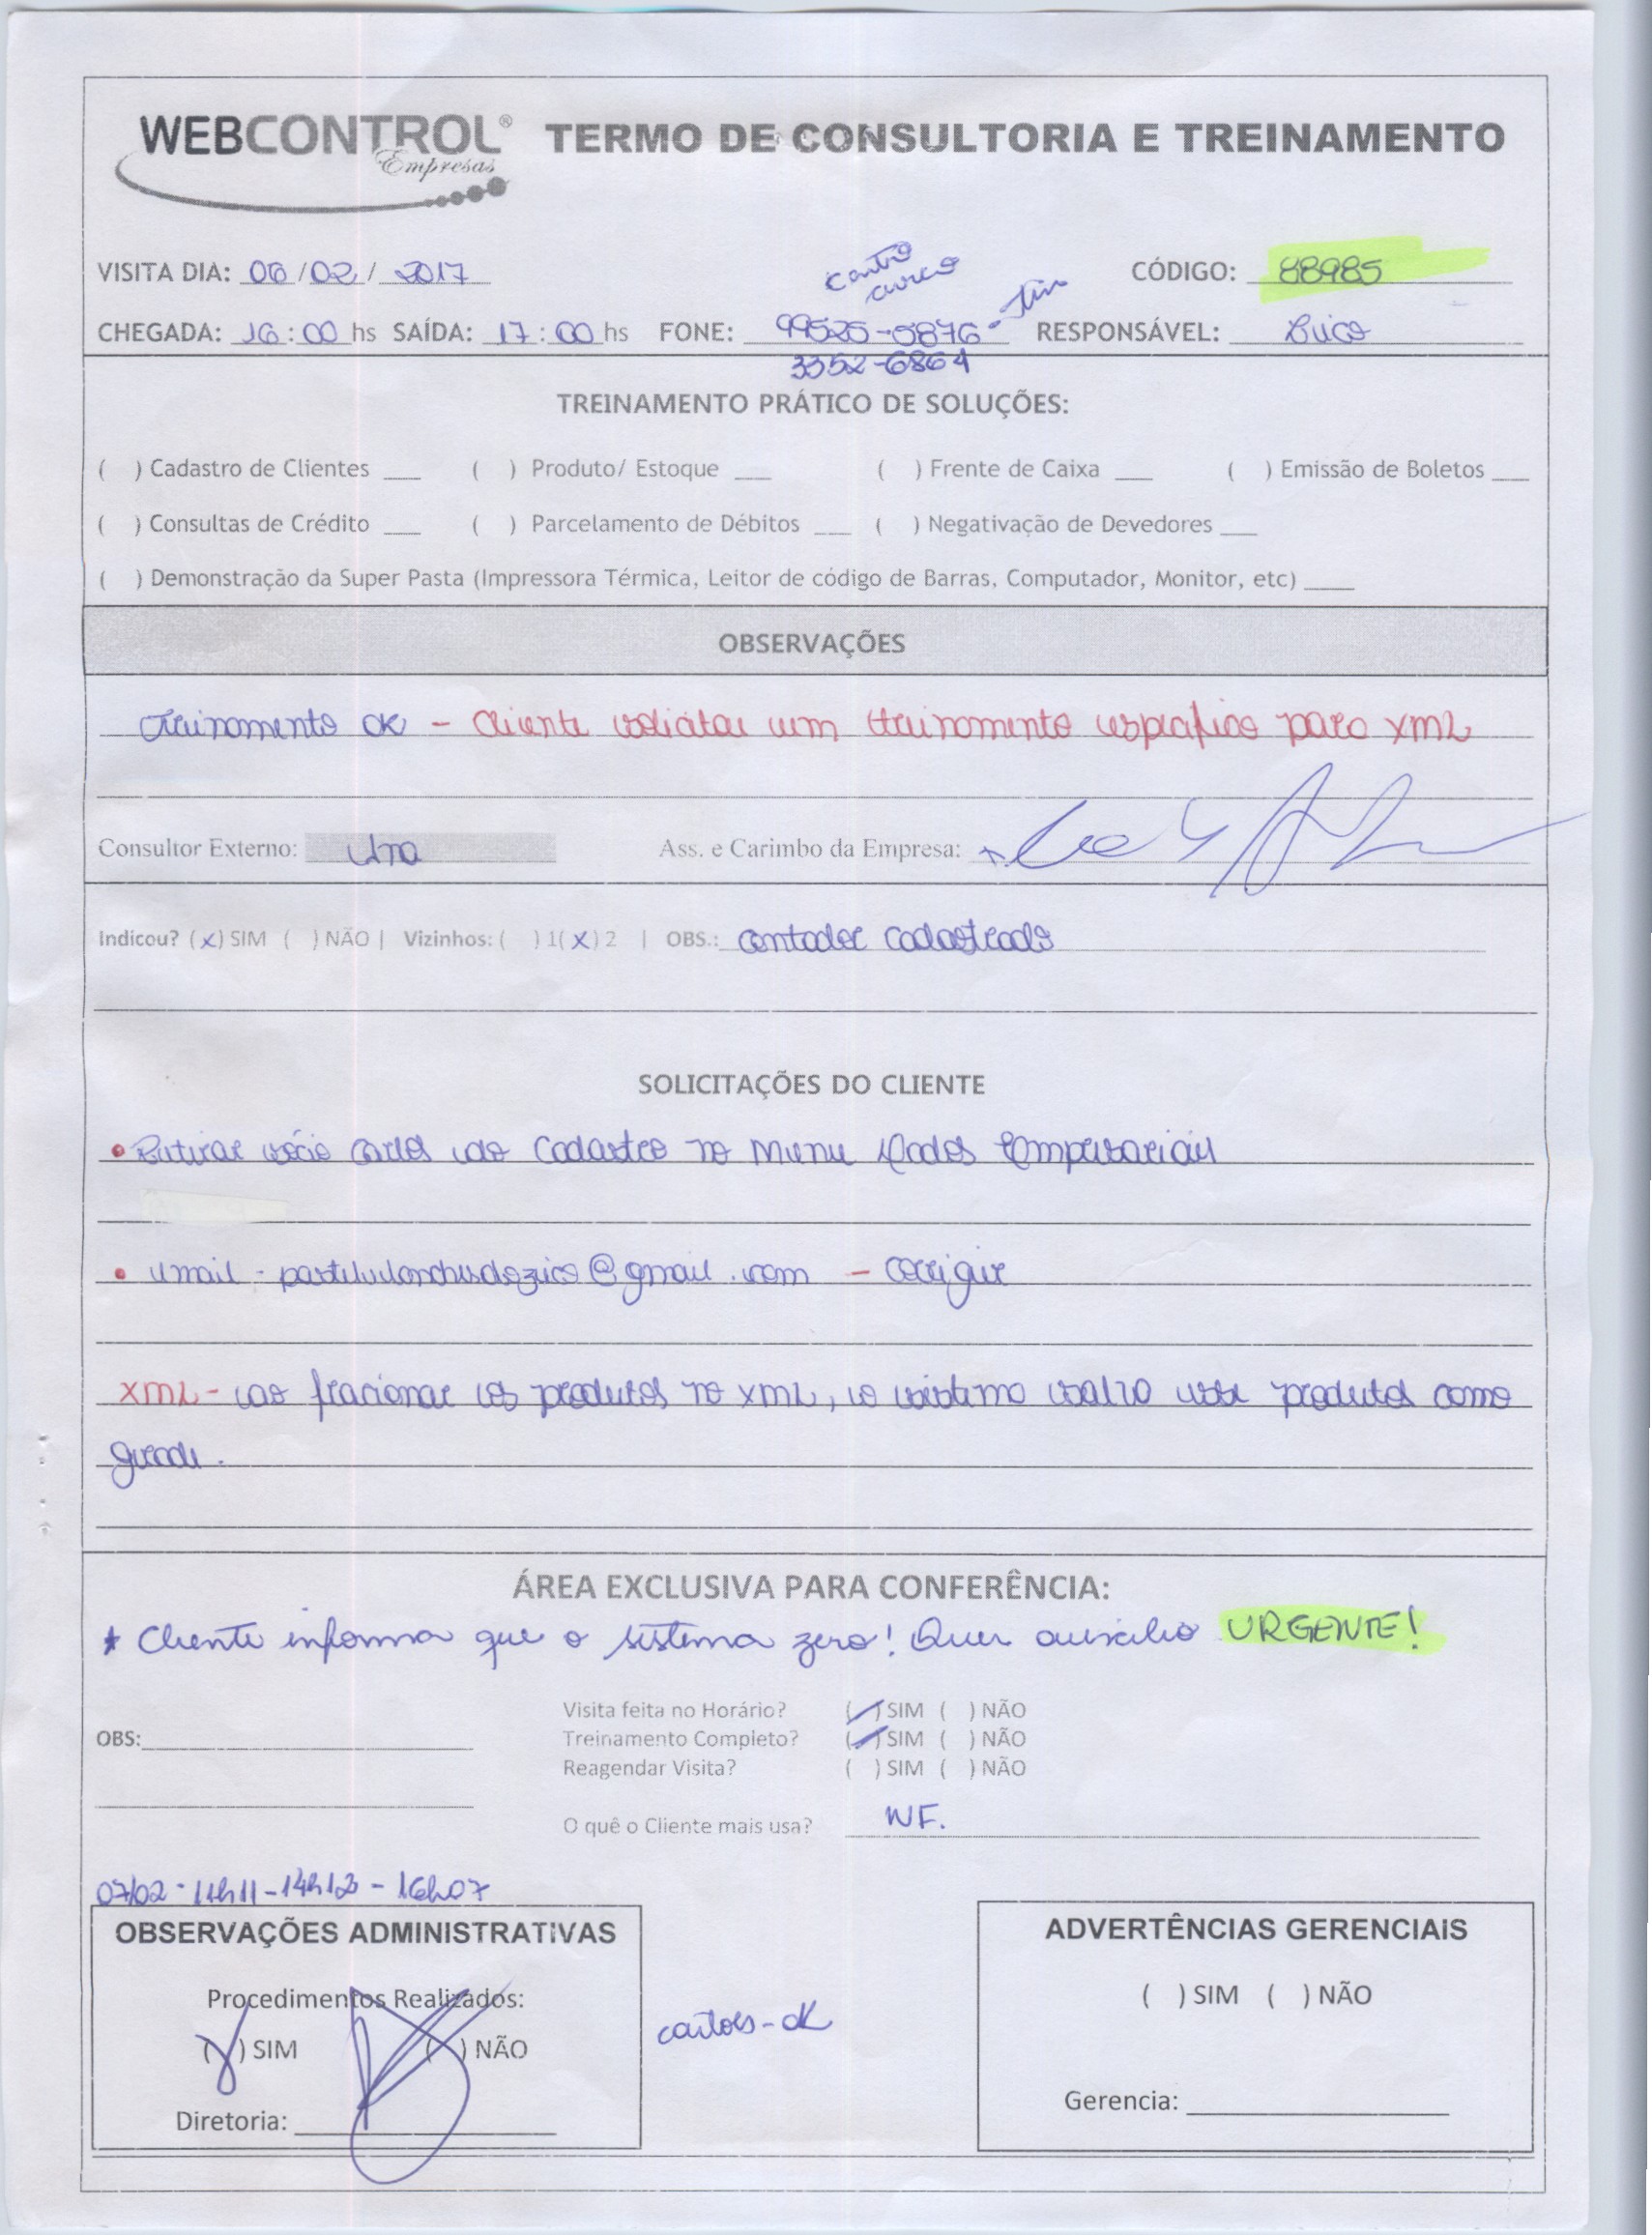 WEBCONTROL® Empresas
TERMO DE CONSULTORIA E TREINAMENTO
VISITA DIA: 06/02/2017
CÓDIGO: 88985
CHEGADA: 16:00 hs SAÍDA: 17:00 hs FONE: 99525-5876 - Tim RESPONSÁVEL:
3352-6864
TREINAMENTO PRÁTICO DE SOLUÇÕES:
( ) Cadastro de Clientes ___ ( ) Produto/ Estoque ___ ( ) Frente de Caixa ___ ( ) Emissão de Boletos ___
( ) Consultas de Crédito ___ ( ) Parcelamento de Débitos ___ ( ) Negativação de Devedores ___
( ) Demonstração da Super Pasta (Impressora Térmica, Leitor de código de Barras, Computador, Monitor, etc) ____
OBSERVAÇÕES
treinamento ok - cliente solicitou um treinamento especifico para XML
Consultor Externo: Ass. e Carimbo da Empresa:
Indicou? (x) SIM ( ) NÃO | Vizinhos: ( ) 1(x) 2 | OBS.: contador cadastrado
SOLICITAÇÕES DO CLIENTE
• Retirar sócio Carlos do cadastro no menu dados Empresariais
• email - @gmail.com - corrigir
XML - ao fracionar os produtos no XML, o sistema salva esse produtos como
grade.
ÁREA EXCLUSIVA PARA CONFERÊNCIA:
* Cliente informa que o sistema zero! Quer auxilio URGENTE!
Visita feita no Horário? (✓) SIM ( ) NÃO
OBS:
Treinamento Completo? (✓) SIM ( ) NÃO
Reagendar Visita? ( ) SIM ( ) NÃO
O quê o Cliente mais usa? NF.
07/02 - 11h11 - 14h12 - 16h07
OBSERVAÇÕES ADMINISTRATIVAS
Procedimentos Realizados:
(x) SIM ( ) NÃO
Diretoria:
cartões - ok
ADVERTÊNCIAS GERENCIAIS
( ) SIM ( ) NÃO
Gerencia: